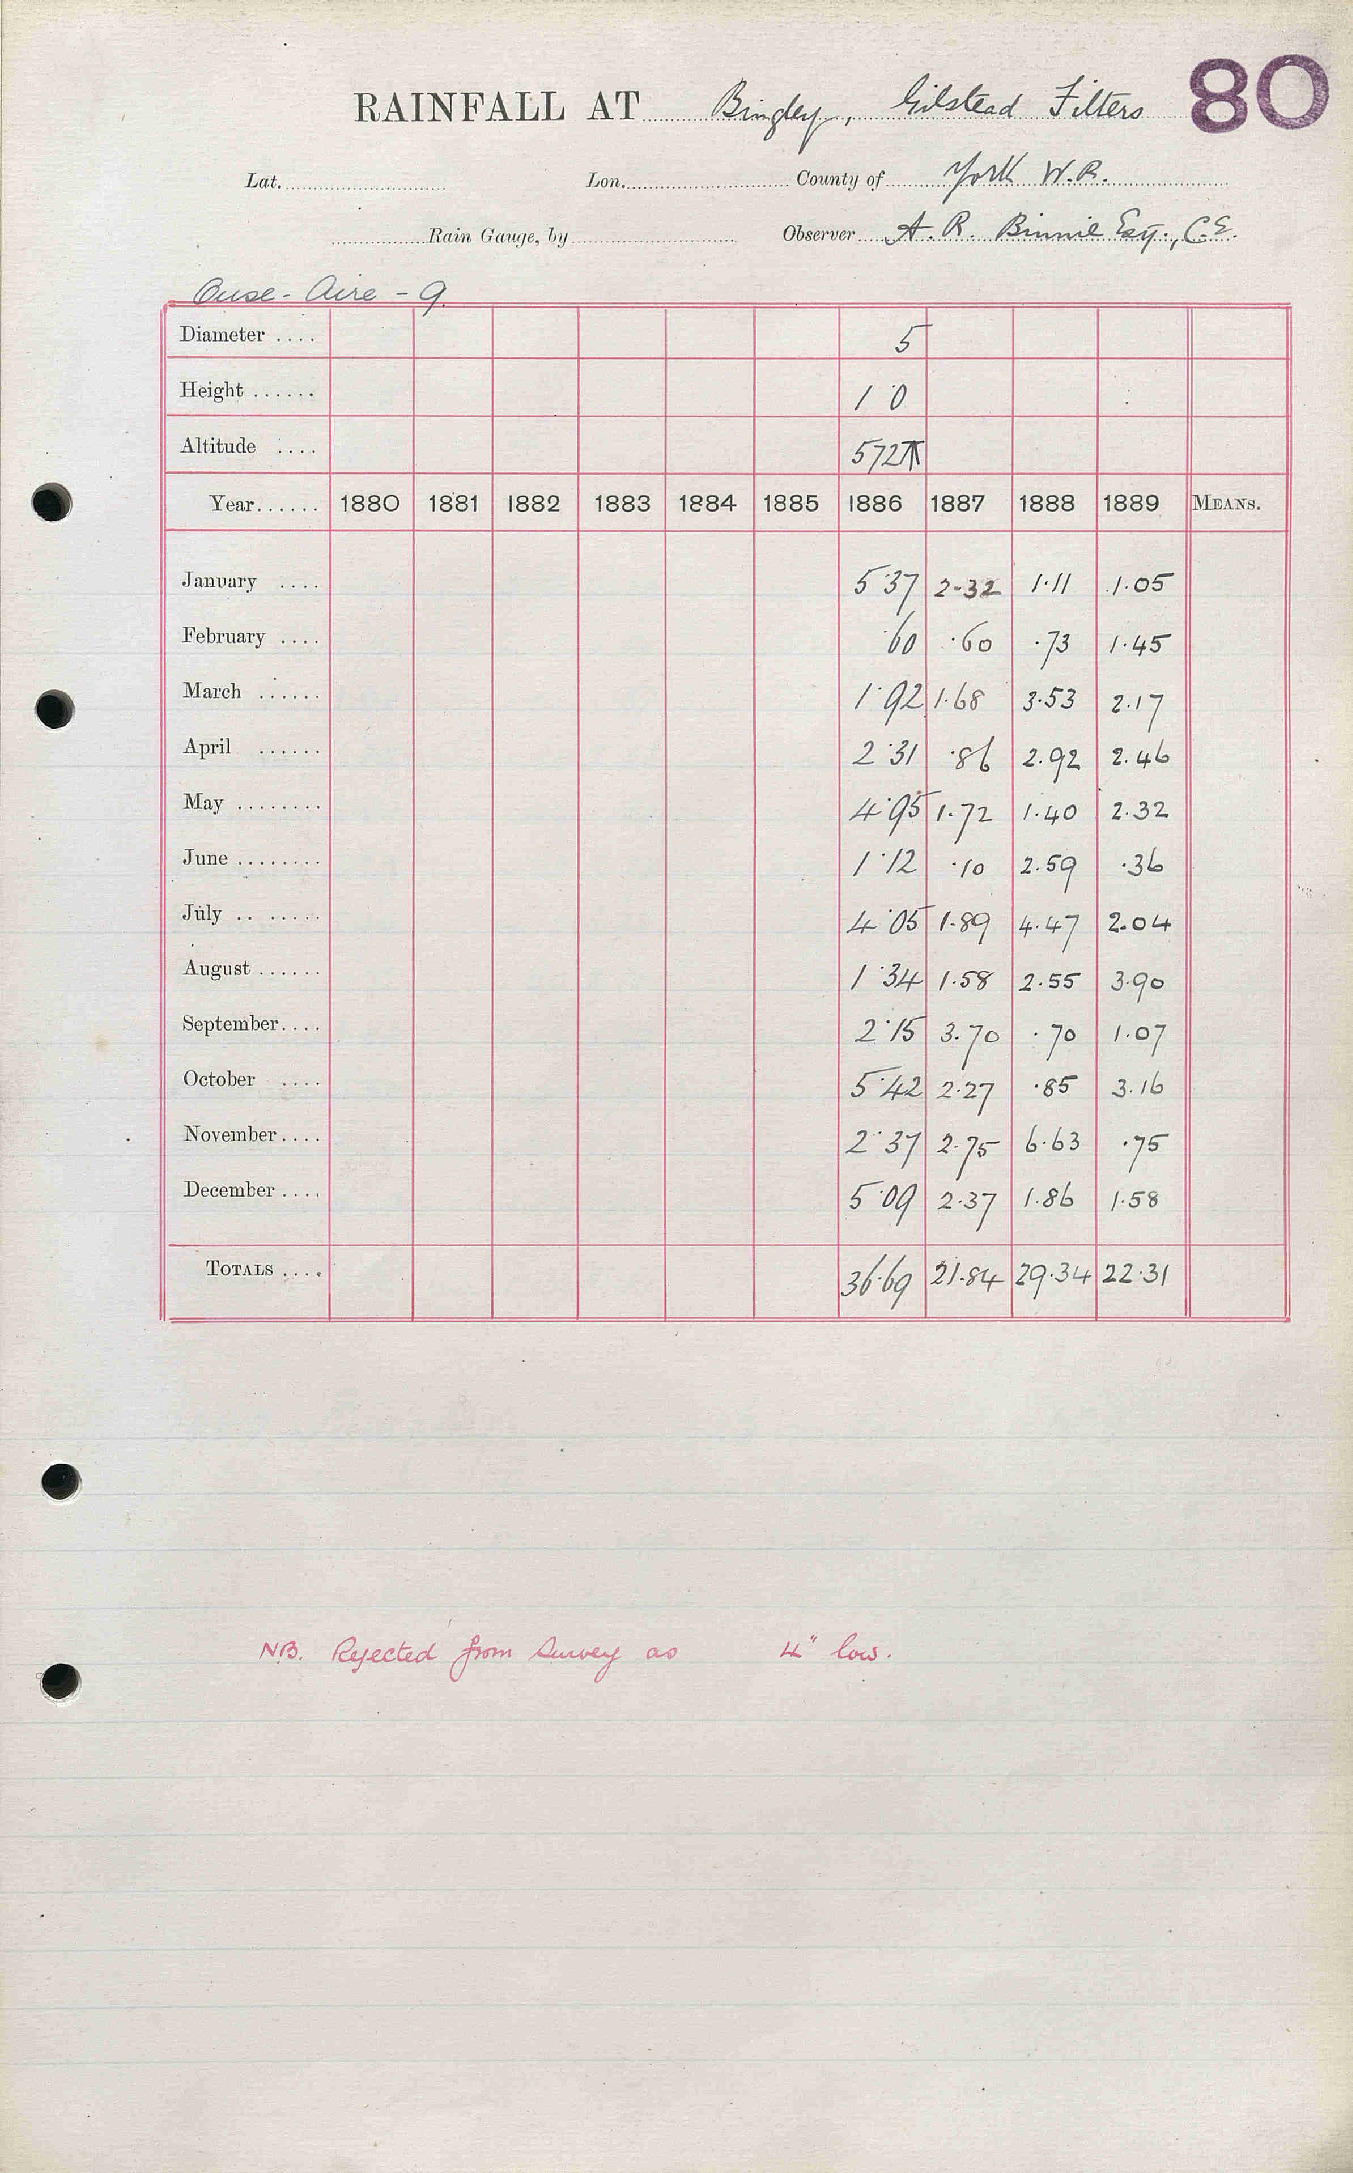 80
RAINFALL AT Bingley, Gilstead Filters
Lat. Lon. County of York W.R.
Rain Gauge, by Observer A. R. Binnie Esq., C.E.
Ouse - Aire - 9
Diameter .... 5
Height ...... 1 · 0
Altitude .... 572
Year...... 1880 1881 1882 1883 1884 1885 1886 1887 1888 1889 MEANS.
January .... 5·37 2·32 1·11 1·05
February .... ·60 ·60 ·73 1·45
March ...... 1·92 1·68 3·53 2·17
April ...... 2·31 ·86 2·92 2·46
May ........ 4·95 1·72 1·40 2·32
June ........ 1·12 ·10 2·59 ·36
July .. ..... 4·05 1·89 4·47 2·04
August ...... 1·34 1·58 2·55 3·90
September.... 2·15 3·70 ·70 1·07
October .... 5·42 2·27 ·85 3·16
November.... 2·37 2·75 6·63 ·75
December.... 5·09 2·37 1·86 1·58
TOTALS .... 36·69 21·84 29·34 22·31
NB. Rejected from Survey as 4" low.